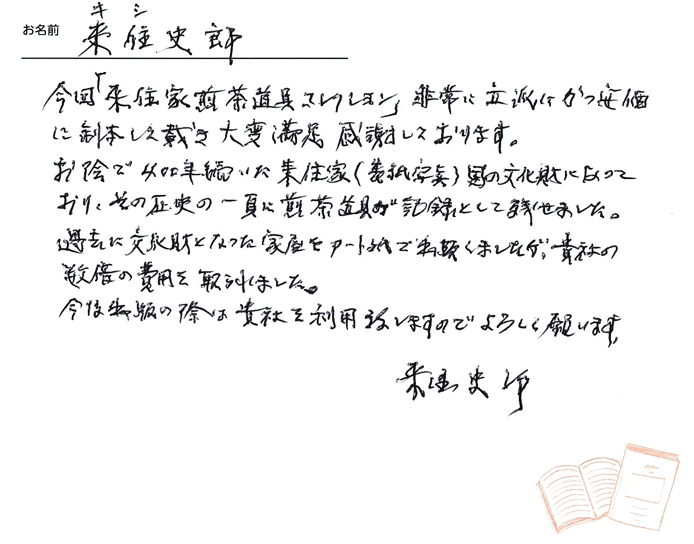 キシ
お名前 来住史郎
今回「来住家煎茶道具コレクション」非常に立派にかつ安価
に製本して戴き大変満足感謝しております。
お陰で400年続いた来住家(表紙写真)国の文化財になって
おり、その歴史の一頁に煎茶道具が記録として残せました。
過去に文化財となった家屋をアート紙で出版しましたが、貴社の
数倍の費用を取られました。
今後出版の際は貴社を利用致しますのでよろしく願います。
来住史郎